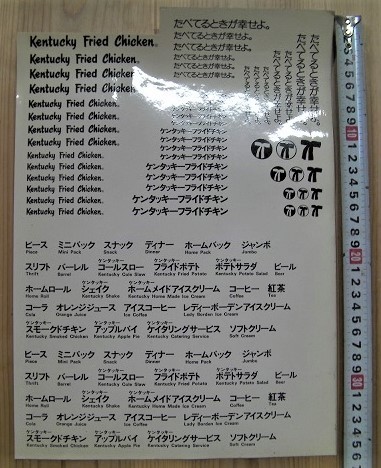 Kentucky Fried Chicken®
Kentucky Fried Chicken®
Kentucky Fried Chicken®
Kentucky Fried Chicken®
Kentucky Fried Chicken®
Kentucky Fried Chicken®
Kentucky Fried Chicken®
Kentucky Fried Chicken®
Kentucky Fried Chicken®
Kentucky Fried Chicken®
Kentucky Fried Chicken®
Kentucky Fried Chicken®
Kentucky Fried Chicken®
たべてるときが幸せよ。
たべてるときが幸せよ。
たべてるときが幸せよ。
たべてるときが幸せよ。
たべてるときが幸せよ。
たべてるときが幸せよ。
たべてるときが幸せよ。
たべてるときが幸せよ。
たべてるときが幸せよ。
たべてるときが幸せよ。
ケンタッキーフライドチキン
ケンタッキーフライドチキン
ケンタッキーフライドチキン
ケンタッキーフライドチキン
ケンタッキーフライドチキン
ケンタッキーフライドチキン
ケンタッキーフライドチキン
ケンタッキーフライドチキン
ピース ミニパック スナック ディナー ホームパック ジャンボ
Piece Mini Pack Snack Dinner Home Pack Jumbo
ケンタッキー ケンタッキー ケンタッキー
スリフト バーレル コールスロー フライドポテト ポテトサラダ ビール
Thrift Barrel Kentucky Cole Slaw Kentucky Fried Potato Kentucky Potato Salad Beer
ケンタッキー ケンタッキー
ホームロール シェイク ホームメイドアイスクリーム コーヒー 紅茶
Home Roll Kentucky Shake Kentucky Home Made Ice Cream Coffee Tea
コーラ オレンジジュース アイスコーヒー レディーボーデンアイスクリーム
Cola Orange Juice Ice Coffee Lady Borden Ice Cream
ケンタッキー ケンタッキー ケンタッキー
スモークドチキン アップルパイ ケイタリングサービス ソフトクリーム
Kentucky Smoked Chicken Kentucky Apple Pie Kentucky Catering Service Soft Cream
ピース ミニパック スナック ディナー ホームパック ジャンボ
Piece Mini Pack Snack Dinner Home Pack Jumbo
ケンタッキー ケンタッキー ケンタッキー
スリフト バーレル コールスロー フライドポテト ポテトサラダ ビール
Thrift Barrel Kentucky Cole Slaw Kentucky Fried Potato Kentucky Potato Salad Beer
ケンタッキー ケンタッキー
ホームロール シェイク ホームメイドアイスクリーム コーヒー 紅茶
Home Roll Kentucky Shake Kentucky Home Made Ice Cream Coffee Tea
コーラ オレンジジュース アイスコーヒー レディーボーデンアイスクリーム
Cola Orange Juice Ice Coffee Lady Borden Ice Cream
ケンタッキー ケンタッキー ケンタッキー
スモークドチキン アップルパイ ケイタリングサービス ソフトクリーム
Kentucky Smoked Chicken Kentucky Apple Pie Kentucky Catering Service Soft Cream